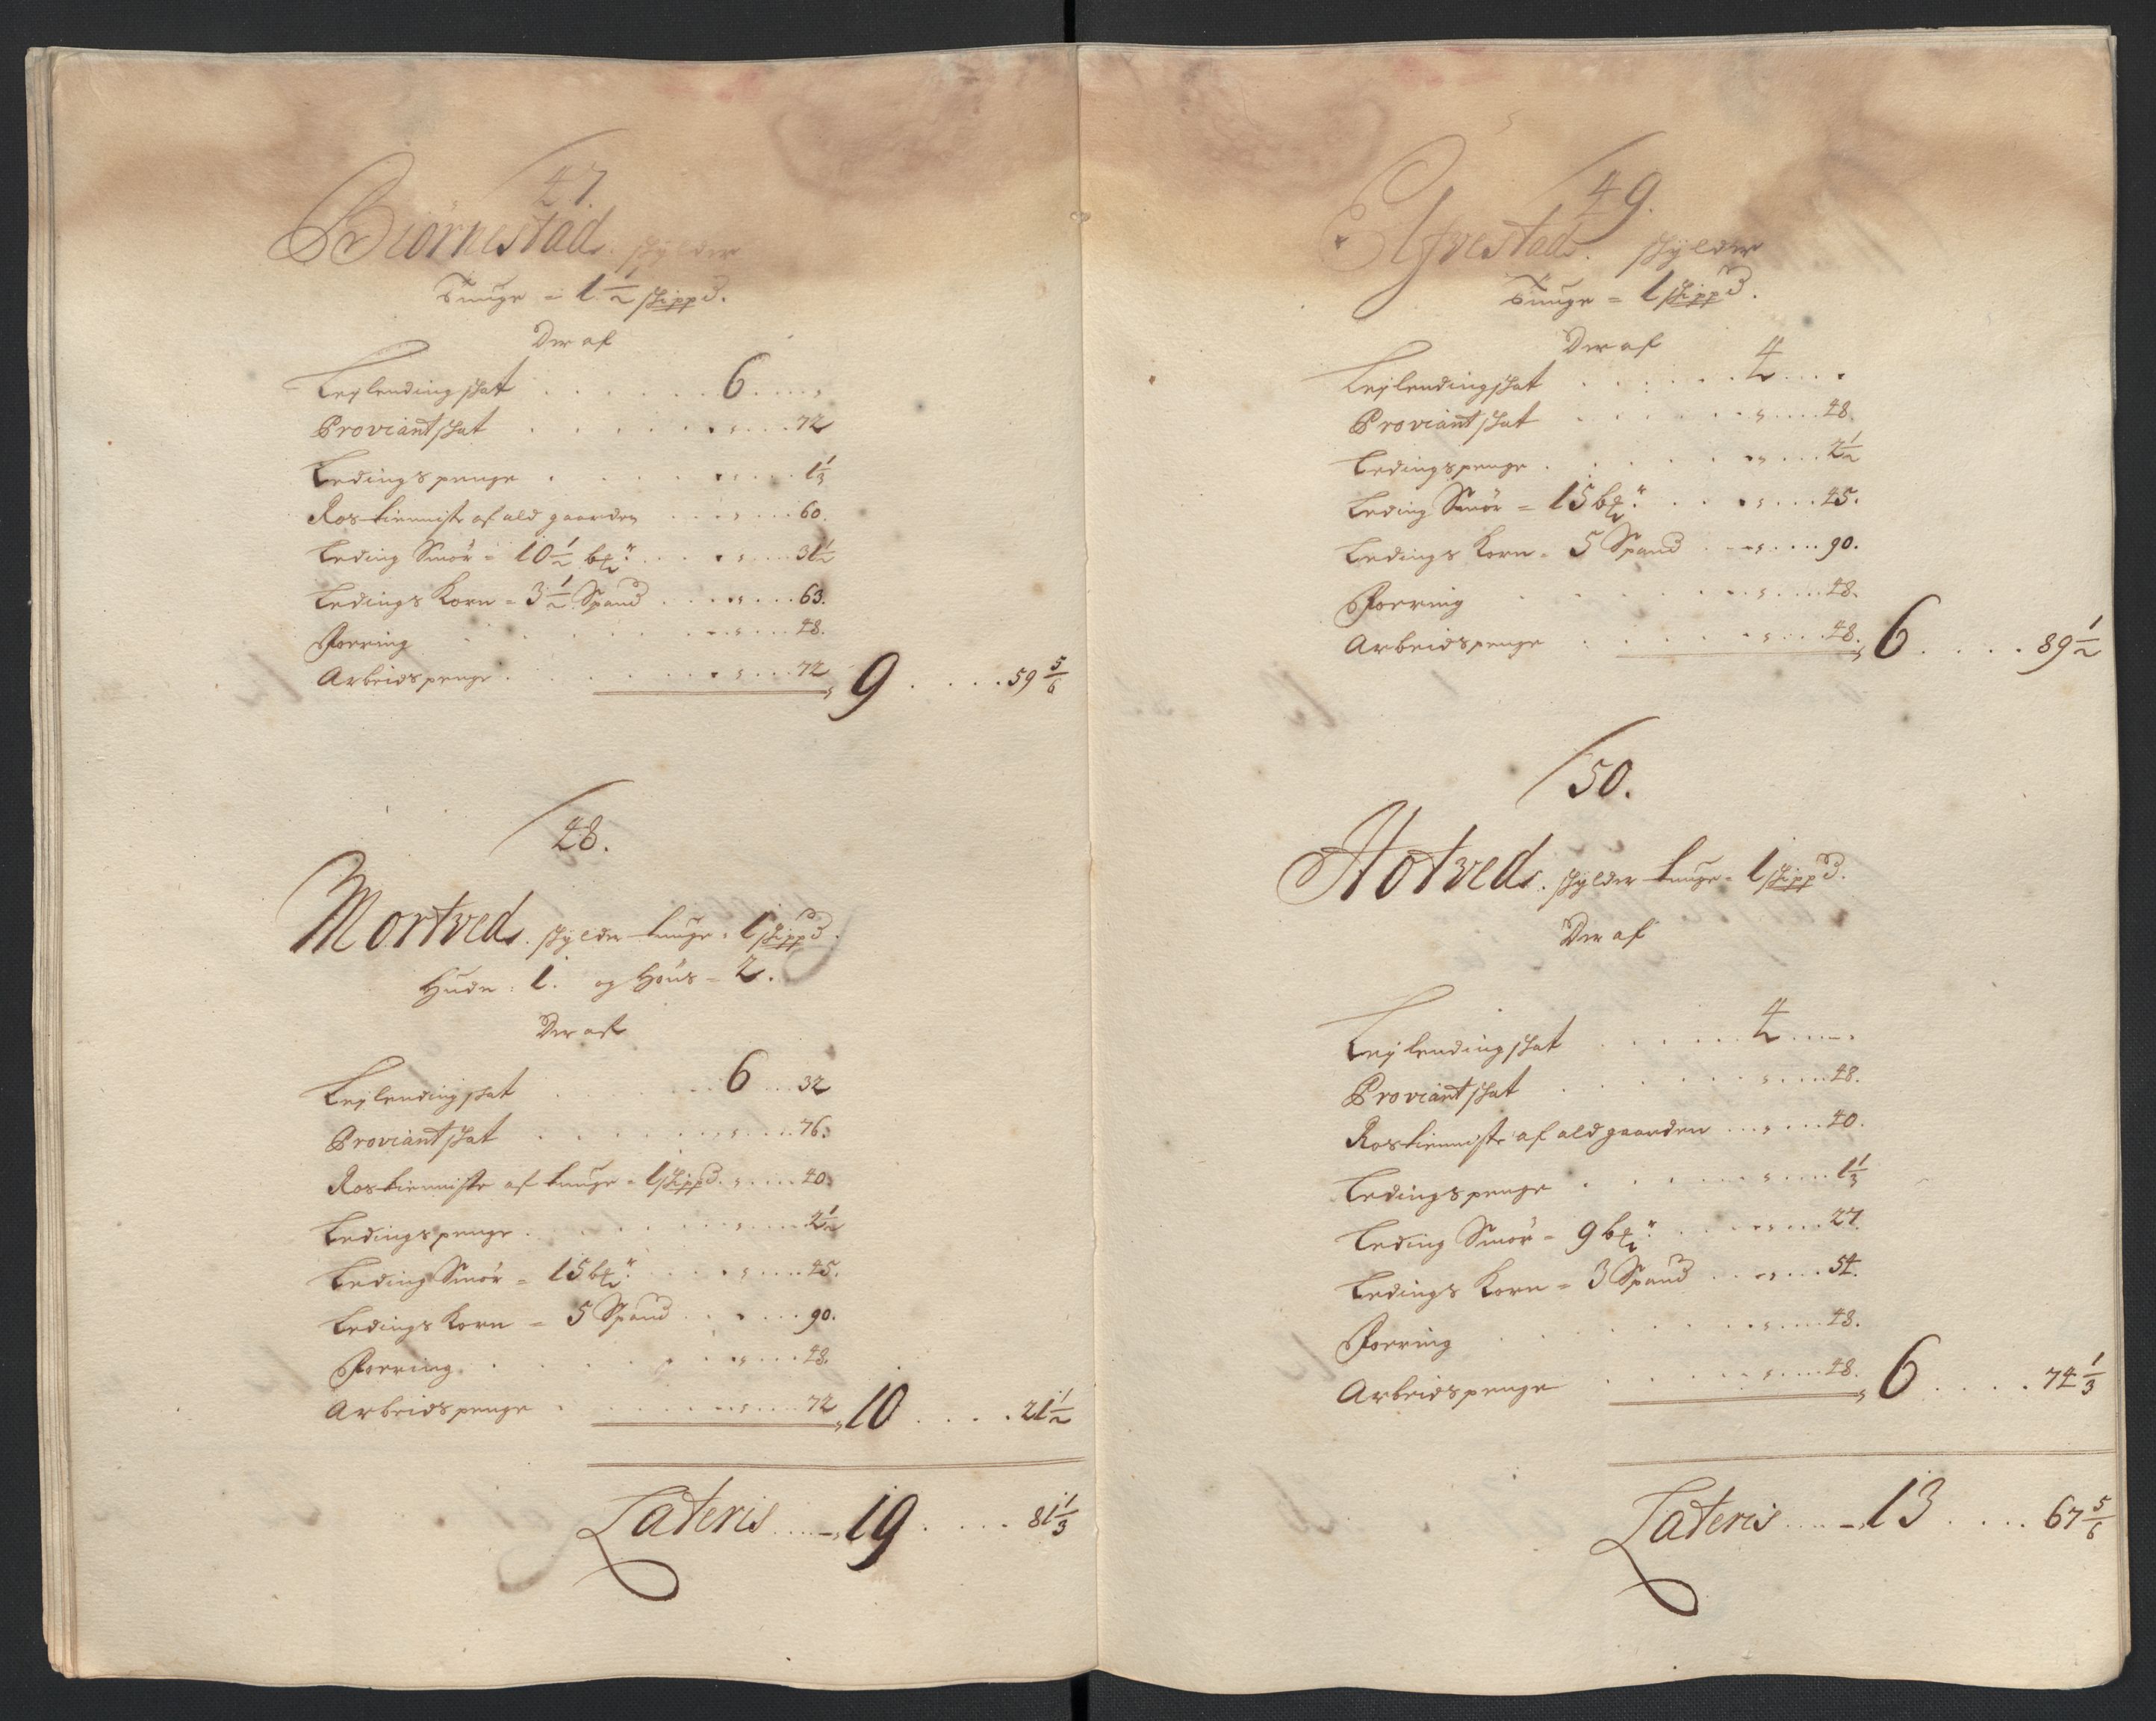 47.
Biørnestad. skylder
Tunge = 1 1/2 skippd.
Der af
Leylendingskat . . . . . . 6 . . . . „
Proviantskat . . . . . . . „ . . . . 72
Ledingspenge . . . . . „ . . . . 1 1/3
Rostienniste af ald gaarden . . . „ . . . 60.
Leding Smør = 10 1/2 b℔r: . . . . „ . . . . 31 1/2
Ledings Korn = 3 1/2 Spand . . . . „ . . . 63.
Foering . . . . . . . . „ . . . 48.
Arbeidspenge . . . . . . . „ . . . 72 „ 9 . . . . . 59 5/6
48.
Mortved. skylder tunge = 1 skippd.
Huder: 1. og Høns = 2.
Der af
Leylendingskat . . . . . . 6 . . . 32
Proviantskat . . . . . . . „ . . . . 76.
Rostienniste af tunge = 1 skippd. „ . . . . 40.
Ledingspenge . . . . . . . „ . . . . 2 1/2
Leding Smør = 15 b℔r: . . . . „ . . . . 45.
Ledings Korn = 5 Spand . . . „ . . . 90.
Foering . . . . . . . „ . . . 48.
Arbeidspenge . . . . . . . „ . . . . 72 „ 10 . . . . . 21 1/2
Lateris . . . . „ 19 . . . . . 81 1/3
49.
Elfvestad. skylder
Tunge = 1 skippd.
Der af
Leylendingskat . . . . . . 4 . . . . „
Proviantskat . . . . . . „ . . . . 48.
Ledingspenge . . . . . . „ . . . . 2 1/2
Leding Smør = 15 b℔r: . . . „ . . . . 45.
Ledings Korn = 5 Spand . . . „ . . . . 90.
Foering . . . . . . . „ . . . . 48.
Arbeidspenge . . . . . . „ . . . . 48. „ 6 . . . . . 89 1/2
50.
Hotved. skylder tunge = 1 skippd.
Der af
Leylendingskat . . . . . . 4 . . . . „
Proviantskat . . . . . . „ . . . . 48.
Rostienniste af ald gaarden . . . „ . . . 40.
Ledingspenge . . . . . . „ . . . . 1 1/3
Leding Smør = 9 b℔r: . . . . „ . . . . 27.
Ledings Korn = 3 Spand . . . „ . . . 54.
Foering . . . . . . . „ . . . . 48.
Arbeidspenge . . . . . . „ . . . . 48. „ 6 . . . . . 74 1/3
Lateris . . . . „ 13 . . . . . 67 5/6